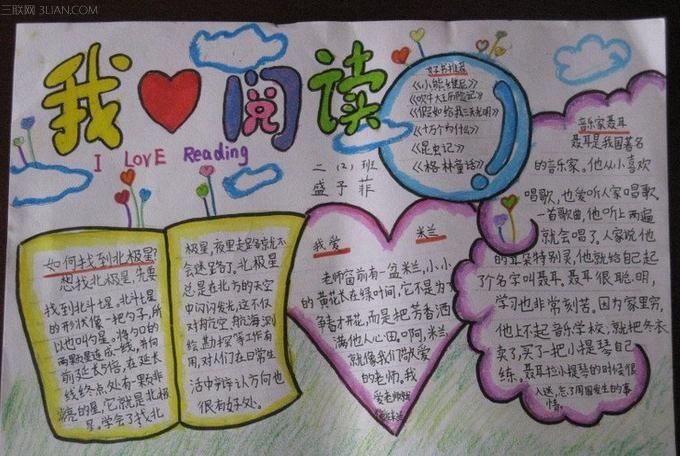 三联网 3LIAN.COM
我 阅读
I LOVE Reading
二（2）班
盛子菲
好书推荐
《小熊维尼》
《吹牛大王历险记》
《假如给我三天光明》
《十万个为什么》
《昆虫记》
《格林童话》
如何找到北极星?
想找北极星,先要
找到北斗七星,北斗七星
的形状像一把勺子,所
以也叫勺星。将勺口的
两颗星连成一线,并向
前延长5倍,在延长
线终点处有一颗非
亮的星,它就是北极
星。学会了找北
极星,夜里走路就不
会迷路了。北极星
总是在北方的天空
中闪闪发光,这不仅
对航空、航海、测
绘、勘探等工作有
用,对人们在日常生
活中辨认方向也
很有好处。
我爱 米兰
老师窗前有一盆米兰,小小
的黄花长在绿叶间,它不是为了
争春才开花,而是把芳香洒
满他人心田。啊,米兰,
就像我们敬爱
的老师。我
爱老师
音乐家聂耳
聂耳是我国著名
的音乐家。他从小喜欢
唱歌,也爱听人家唱歌。
一首歌曲,他听上两遍
就会唱了。人家说他
的耳朵特别灵,他就给自己起
了个名字叫聂耳。聂耳很聪明,
学习也非常刻苦。因为家里穷,
他上不起音乐学校,就把冬衣
卖了,买了一把小提琴自己
练。聂耳拉小提琴的时候很
入迷,忘了周围发生的事
情。